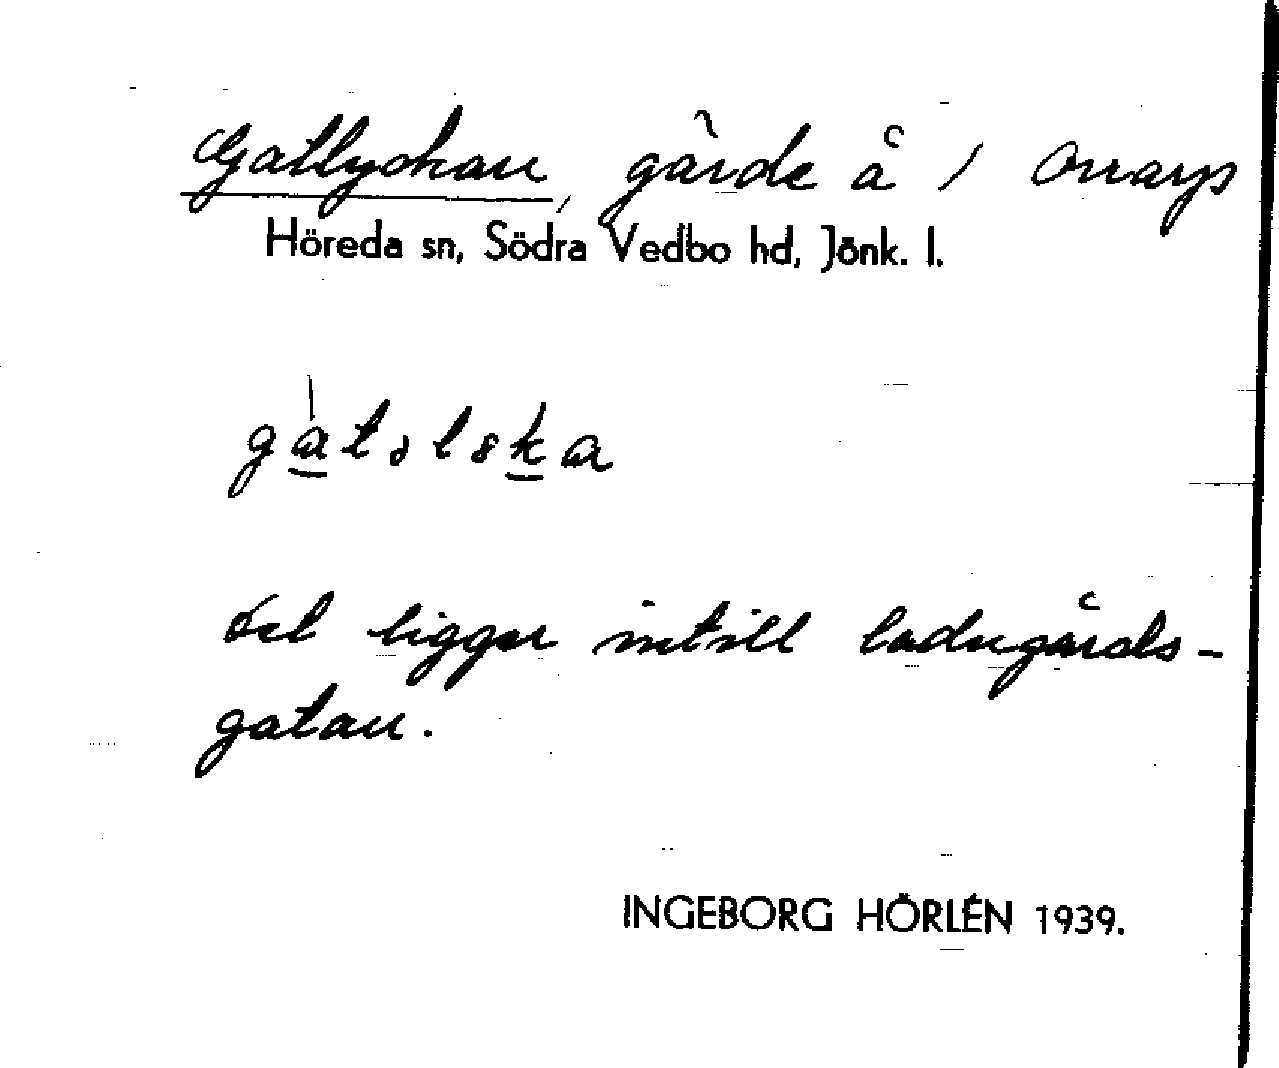 Gatlyckan, gärde å 1 Orrarys
Höreda sn, Södra Vedbo hd, Jönk. l.
Det ligger intill ladugårds-
gatan.
INGEBORG HÖRLÉN 1939.